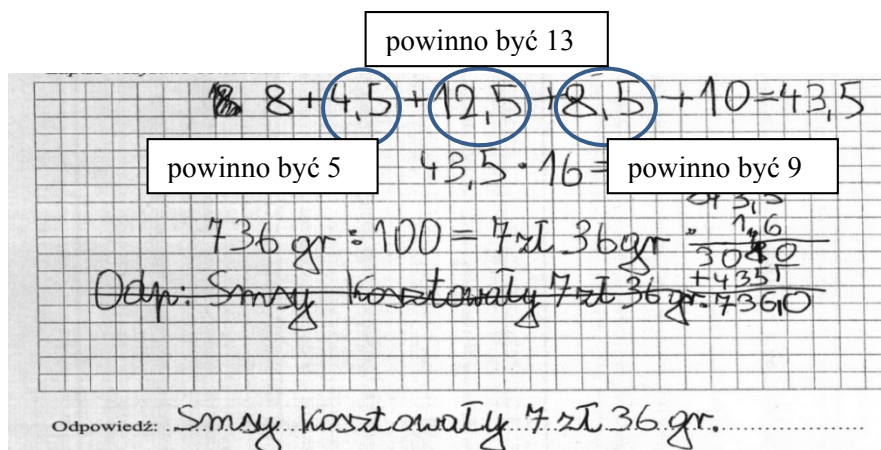 powinno być 13
8 + 4,5 + 12,5 + 8,5 + 10 = 43,5
powinno być 5
43,5 · 16 =
powinno być 9
43,5
· 1,6
736 gr : 100 = 7 zł 36 gr
30
+ 435
7360
Odp: Smsy kosztowały 7 zł 36 gr.
Odpowiedź: Smsy kosztowały 7 zł 36 gr.